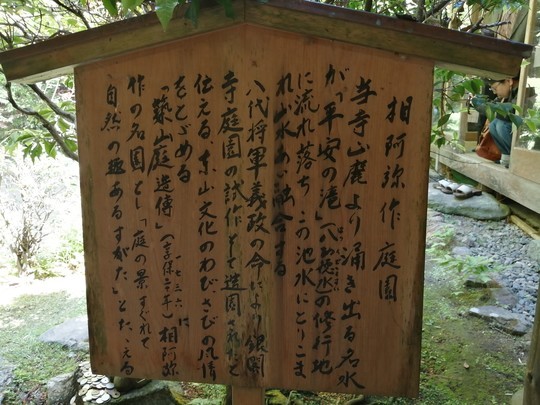 相阿弥作庭園
当寺山麓より涌き出る名水
が「平安の滝」(八功徳水)の修行地
に流れ落ち、この池水にとりこま
れ山水あい融合する
八代将軍義政の命により銀閣
寺庭園の試作として造園されたと
伝える東山文化のわびさびの風情
をとどめる
「築山庭造傳」(享保二十年)(一七三六)に相阿弥
作の名園とし「庭の景すぐれて
自然の趣あるすがた」とたゝえる